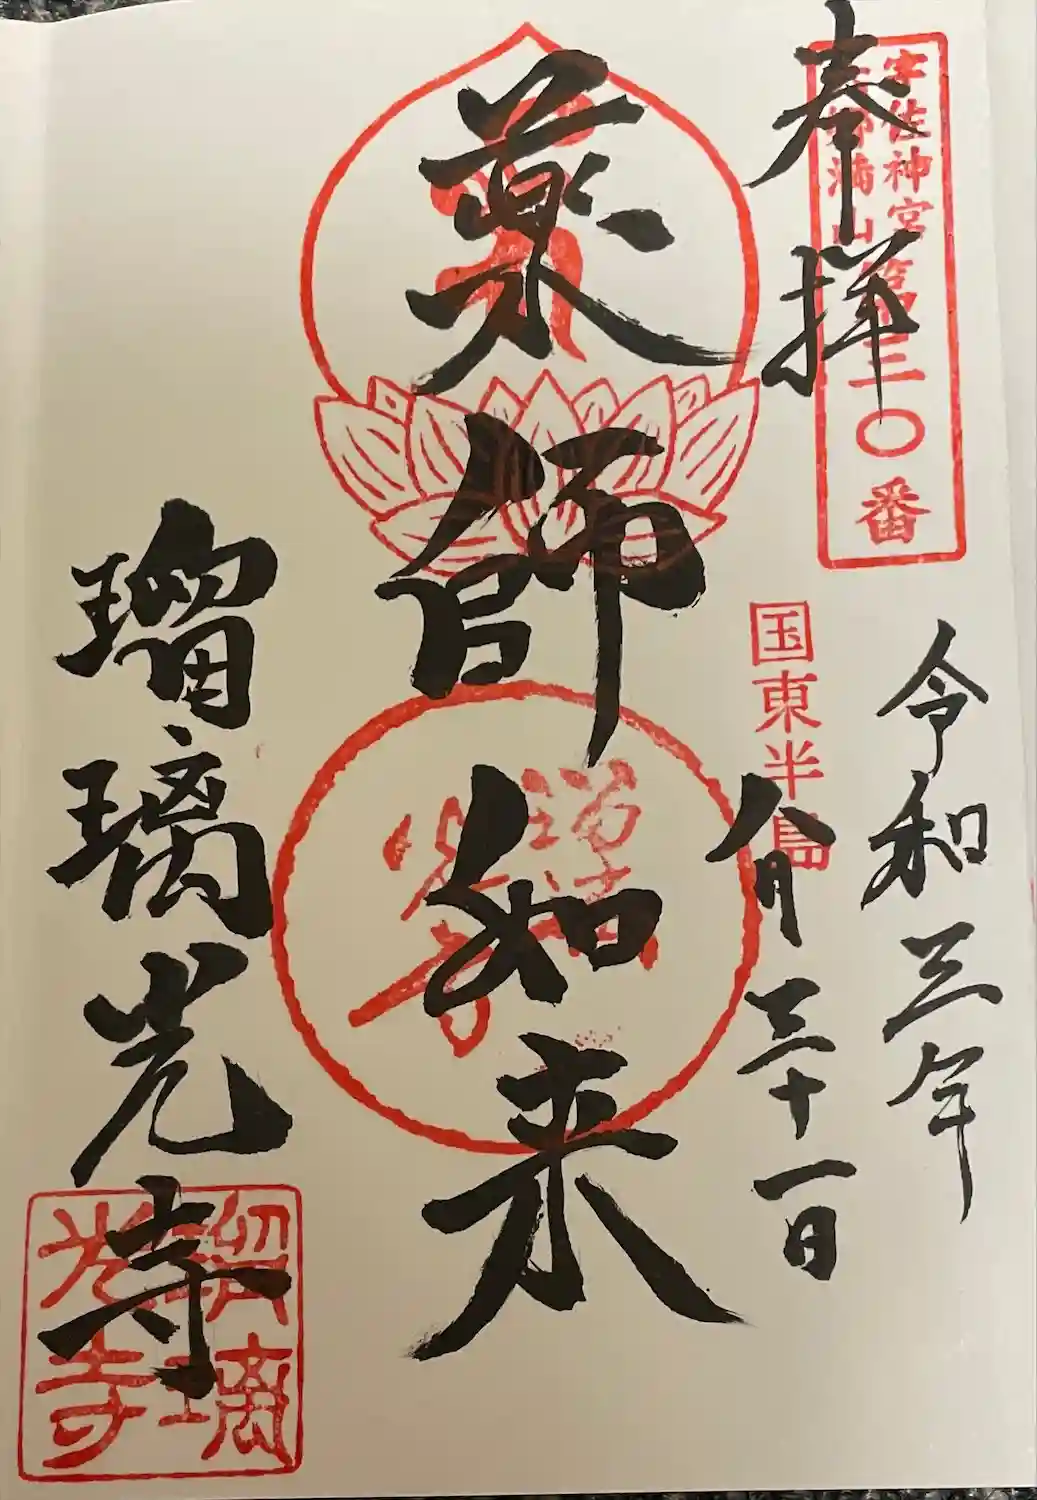 奉拝
宇佐神宮
六郷満山
第三〇番
令和三年
国東半島
八月三十一日
薬師如来
瑠璃光寺
瑠璃光寺
瑠璃光寺